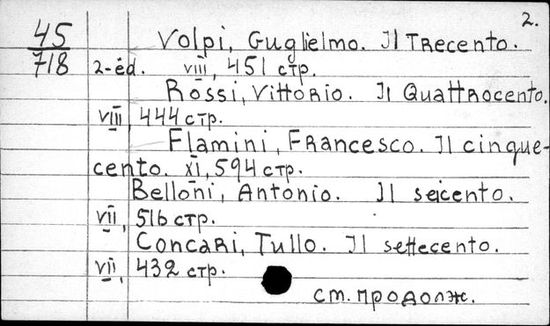 2.
45
718
Volpi, Guglielmo. Il Trecento.
2-éd. VIII, 451 стр.
Rossi, Vittorio. Il Quattrocento.
VIII, 444 стр.
Flamini, Francesco. Il cinque-
cento. XI, 594 стр.
Belloni, Antonio. Il seicento.
VII, 516 стр.
Concari, Tullo. Il settecento.
VII, 432 стр.
см. продолж.